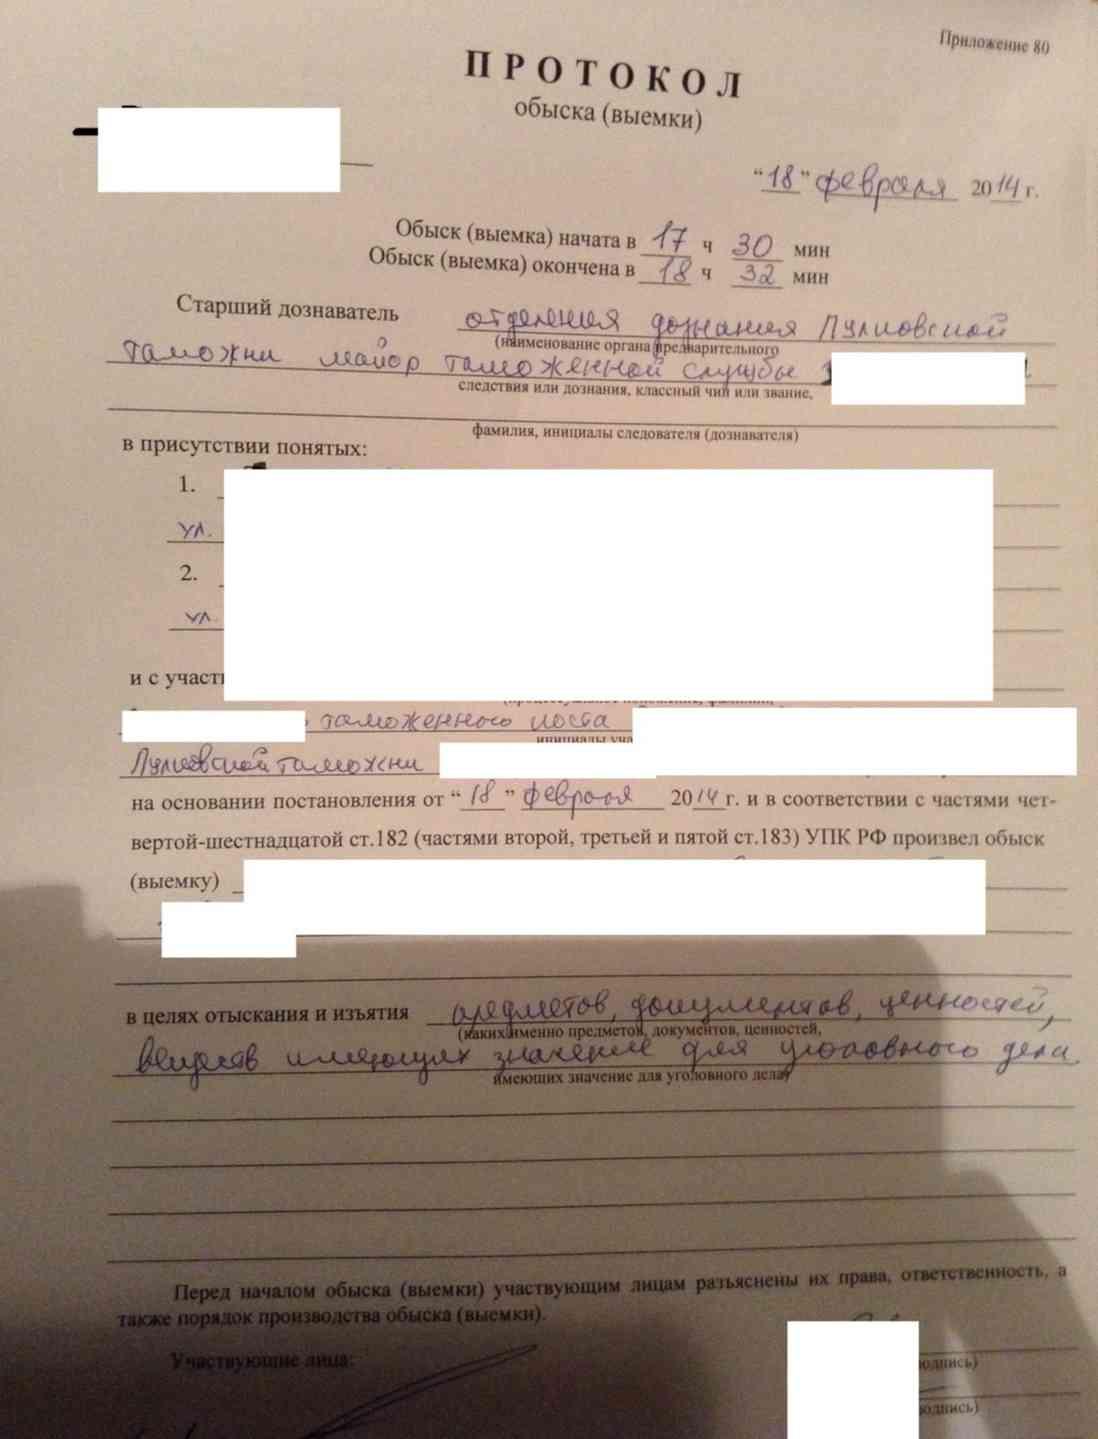 Приложение 80
ПРОТОКОЛ
обыска (выемки)
“18” февраля 2014 г.
Обыск (выемка) начата в 17 ч 30 мин
Обыск (выемка) окончена в 18 ч 32 мин
Старший дознаватель отделения дознания Пулковской
(наименование органа предварительного
таможни майор таможенной службы
следствия или дознания, классный чин или звание,
фамилия, инициалы следователя (дознавателя)
в присутствии понятых:
1.
ул.
2.
ул.
и с участи
таможенного поста
инициалы уча
Пулковской таможни
на основании постановления от “18” февраля 2014 г. и в соответствии с частями чет-
вертой-шестнадцатой ст.182 (частями второй, третьей и пятой ст.183) УПК РФ произвел обыск
(выемку)
в целях отыскания и изъятия предметов, документов, ценностей,
(каких именно предметов, документов, ценностей,
веществ имеющих значение для уголовного дела.
имеющих значение для уголовного дела)
Перед началом обыска (выемки) участвующим лицам разъяснены их права, ответственность, а
также порядок производства обыска (выемки).
Участвующие лица:
одпись)
одпись)